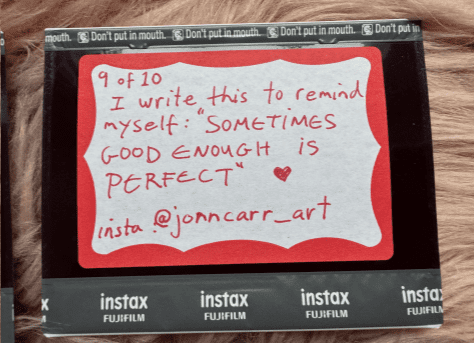 mouth. Don't put in mouth. Don't put in mouth. Don't put in mouth. Don't put in
9 of 10
I write this to remind
myself: "SOMETIMES
GOOD ENOUGH is
PERFECT" ♥
insta: @jonncarr_art
instax instax instax instax
FUJIFILM FUJIFILM FUJIFILM FUJIFILM